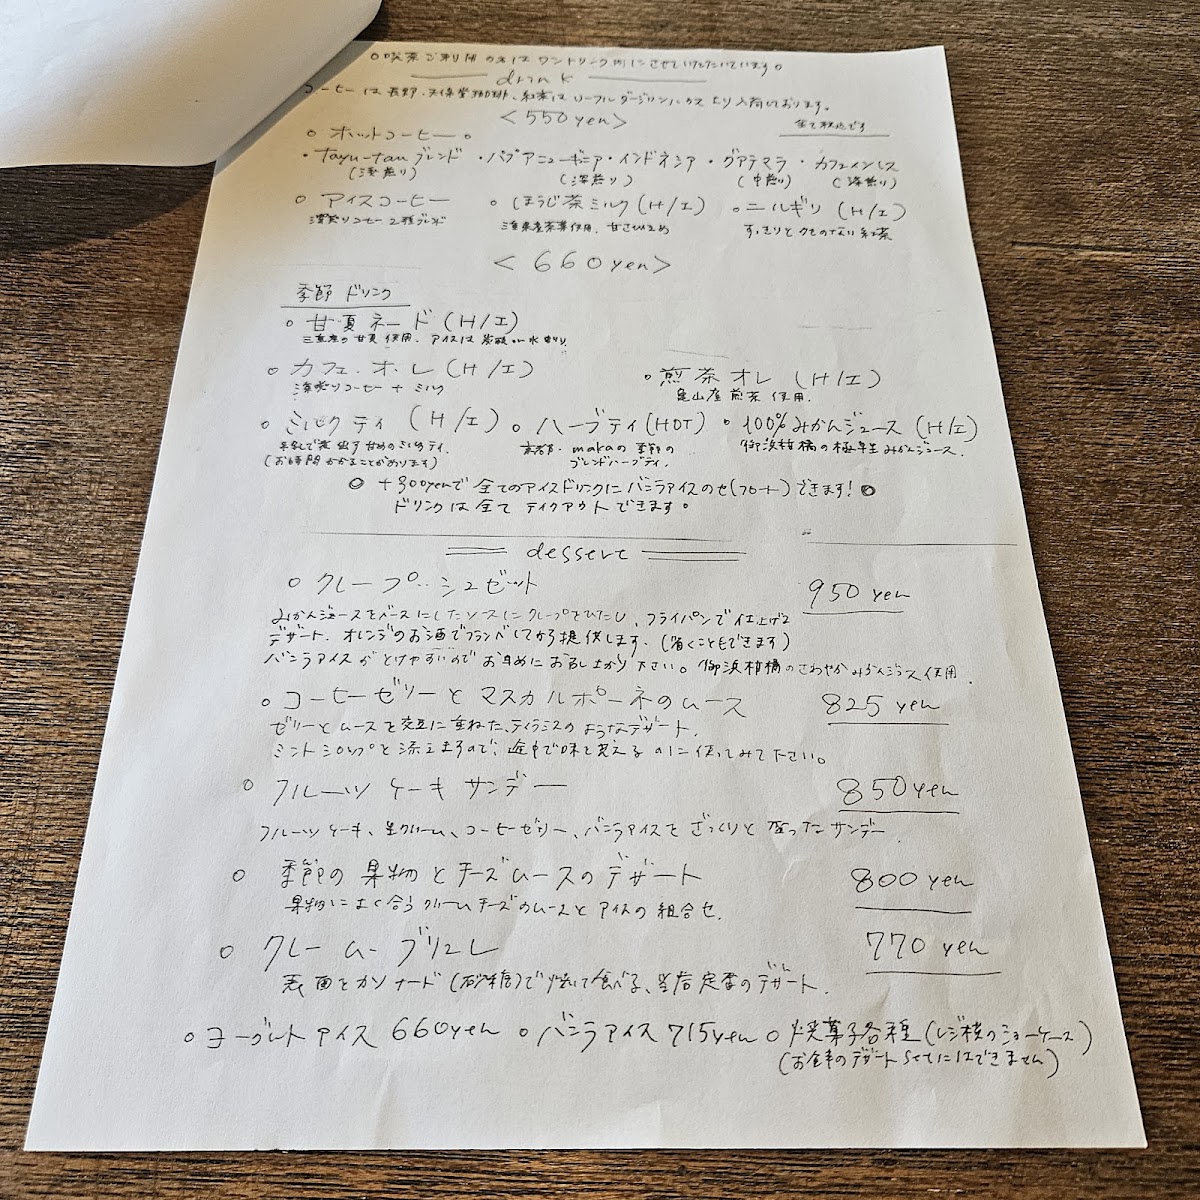 ○喫茶ご利用の方はワンドリンク制にさせていただいています○
drink
コーヒーは長野・天保堂珈琲、紅茶はリーフルダージリンハウスより入荷しております。
<550yen>
全て税込です
○ ホットコーヒー ○
・tayu-tauブレンド ・パプアニューギニア・インドネシア ・グアテマラ ・カフェインレス
(浅煎り) (深煎り) (中煎り) (深煎り)
○ アイスコーヒー ○ほうじ茶ミルク(H/I) ○ニルギリ (H/I)
深煎りコーヒー2種ブレンド 三重県産茶葉使用、甘さひかえめ すっきりとクセのない紅茶
<660yen>
季節 ドリンク
○ 甘夏ネード(H/I)
三重産の甘夏使用、アイスは炭酸or水割り
○ カフェ・オ・レ(H/I) ○煎茶オレ (H/I)
深煎りコーヒー + ミルク 亀山産煎茶使用.
○ ミルクティ (H/I) ○ ハーブティ(HOT) ○ 100%みかんジュース (H/I)
手鍋で煮出す甘めのミルクティ. 京都・makaの季節の 御浜柑橘の極早生みかんジュース.
(お時間かかることがあります) ブレンドハーブティ.
◎ +300yenで全てのアイスドリンクにバニラアイスのせ(フロート)できます! ◎
ドリンクは全てテイクアウトできます。
dessert
○ クレープ・シュゼット 950 yen
みかんジュースをベースにしたソースにクレープをひたし、フライパンで仕上げる
デザート. オレンジのお酒でフランベしてから提供します.(省くこともできます)
バニラアイスがとけやすいのでお早めにお召し上がり下さい。御浜柑橘のさわやかみかんジュース使用.
○ コーヒーゼリーとマスカルポーネのムース 825 yen
ゼリーとムースを交互に重ねた、ティラミスのようなデザート.
ミントシロップを添えますので、途中で味を変えるのに使ってみて下さい。
○ フルーツケーキサンデー 850yen
フルーツケーキ、生クリーム、コーヒーゼリー、バニラアイスをざっくりと盛ったサンデー.
○ 季節の果物とチーズムースのデザート 800 yen
果物によく合うクリームチーズのムースとアイスの組合せ.
○ クレームブリュレ 770 yen
表面をカソナード(砂糖)で焼いて食べる、当店定番のデザート.
○ヨーグルトアイス 660yen ○バニラアイス 715yen ○ 焼菓子各種(レジ横のショーケース)
(お食事のデザートsetにはできません)